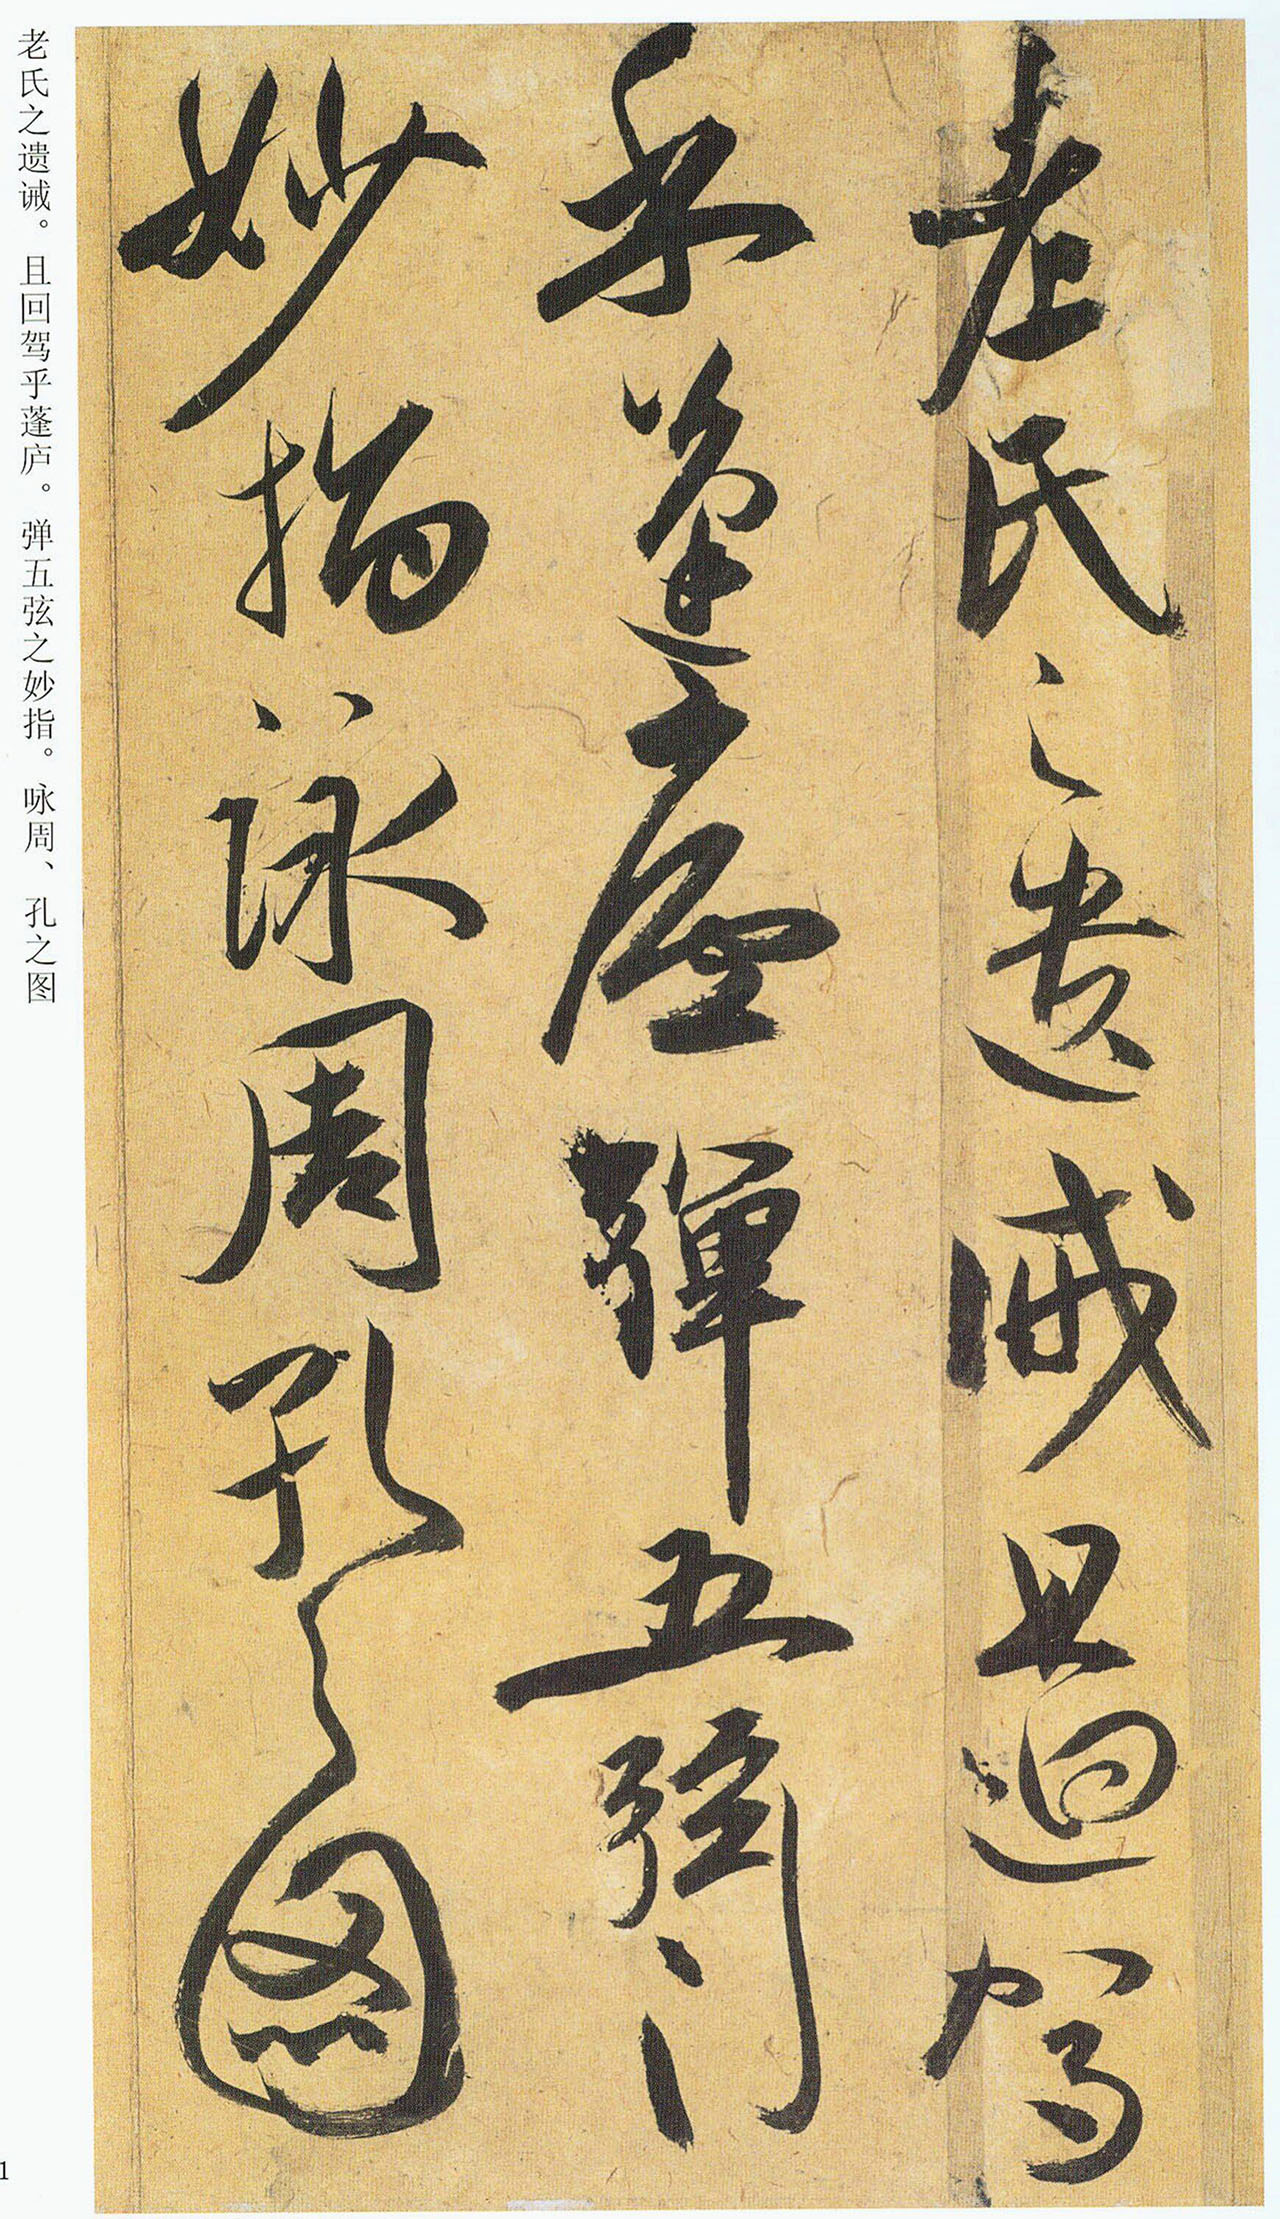 老氏之遺誡且迴駕
乎蓬廬彈五弦
妙指詠周孔之圖
老氏之遗诫。且回驾乎蓬庐。弹五弦之妙指。咏周、孔之图
1